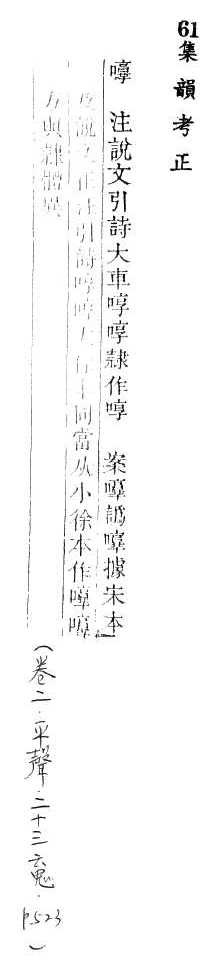 61集韻考正
嚉 注說文引詩大車啍啍隷作啍 案嚉譌嚉據宋本
及說文正注引詩啍啍大徐本同當从小徐本作嚉嚉
方與隷體異
(卷二·平聲·二十三䰟·p523)